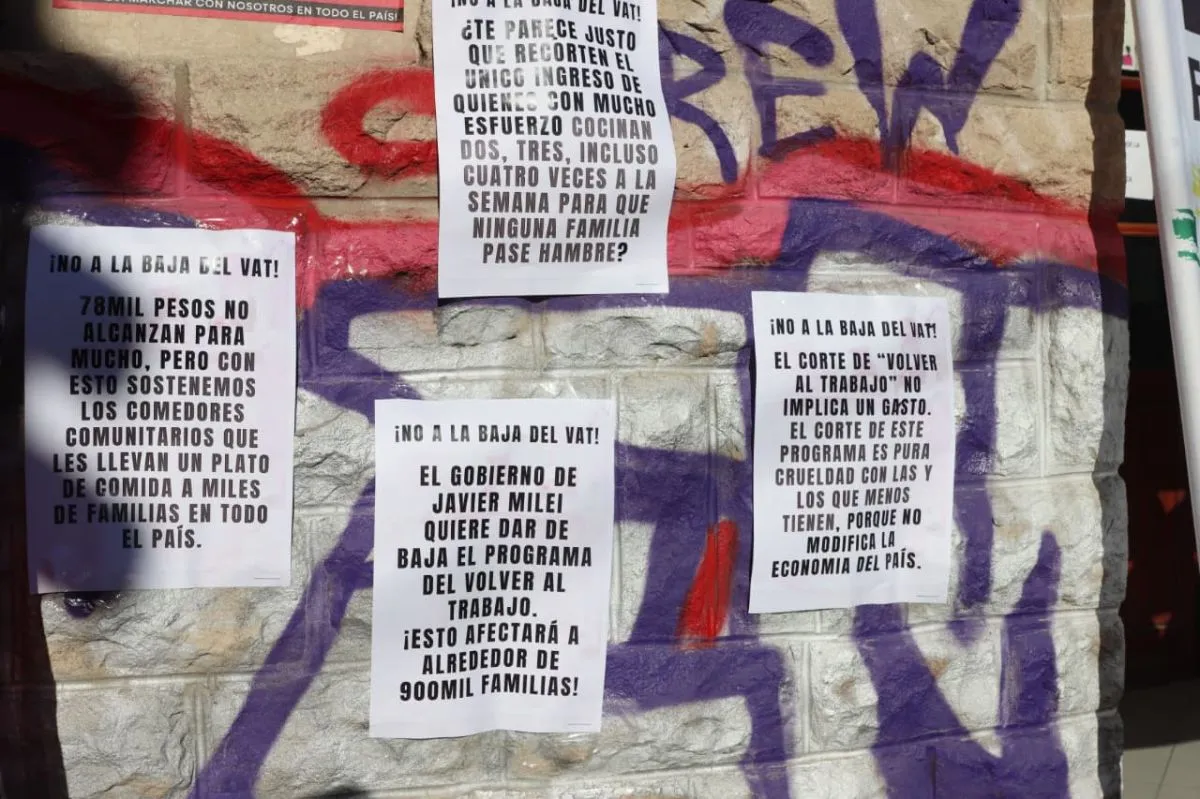 MARCHAR CON NOSOTROS EN TODO EL PAÍS!
¡NO A LA BAJA DEL VAT!
¿TE PARECE JUSTO
QUE RECORTEN EL
UNICO INGRESO DE
QUIENES CON MUCHO
ESFUERZO COCINAN
DOS, TRES, INCLUSO
CUATRO VECES A LA
SEMANA PARA QUE
NINGUNA FAMILIA
PASE HAMBRE?
¡NO A LA BAJA DEL VAT!
78MIL PESOS NO
ALCANZAN PARA
MUCHO, PERO CON
ESTO SOSTENEMOS
LOS COMEDORES
COMUNITARIOS QUE
LES LLEVAN UN PLATO
DE COMIDA A MILES
DE FAMILIAS EN TODO
EL PAÍS.
¡NO A LA BAJA DEL VAT!
EL GOBIERNO DE
JAVIER MILEI
QUIERE DAR DE
BAJA EL PROGRAMA
DEL VOLVER AL
TRABAJO.
¡ESTO AFECTARÁ A
ALREDEDOR DE
900MIL FAMILIAS!
¡NO A LA BAJA DEL VAT!
EL CORTE DE “VOLVER
AL TRABAJO” NO
IMPLICA UN GASTO.
EL CORTE DE ESTE
PROGRAMA ES PURA
CRUELDAD CON LAS Y
LOS QUE MENOS
TIENEN, PORQUE NO
MODIFICA LA
ECONOMIA DEL PAÍS.